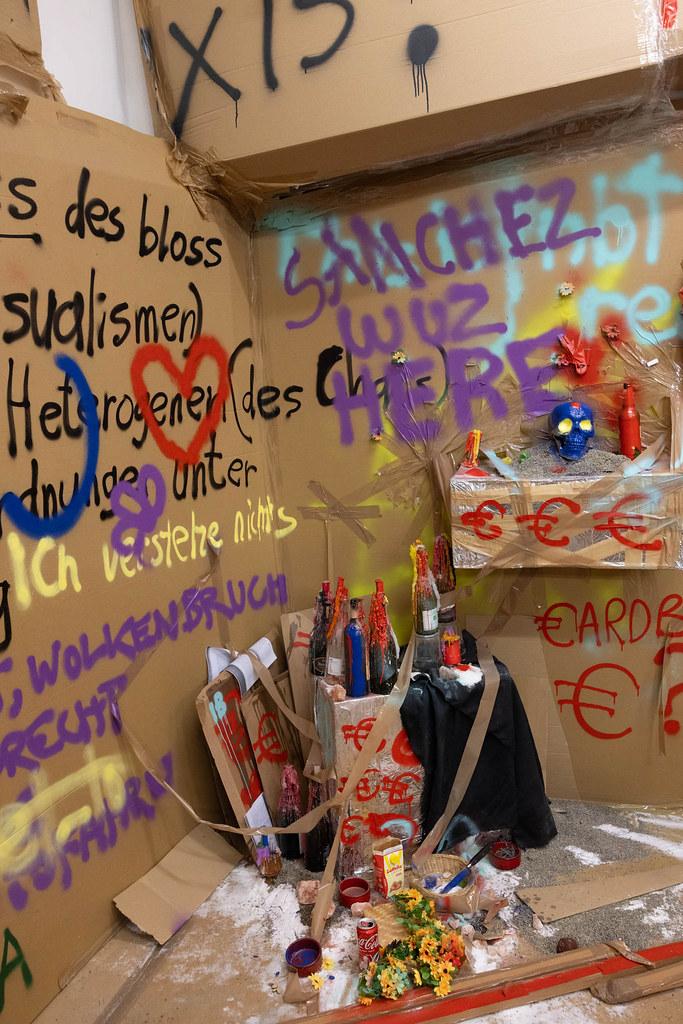 XIS.
s des bloss
sualismen)
Heterogenen (des Chaos)
dnungen unter
Ich verstehe nichts
, WOLKENBRUCH
RECHT
FAHRN
A
SANCHEZ
WUZ
HERE
bt
re
€ € €
€ARDB
€ ?
€
€
€€€
€
Coca-Cola